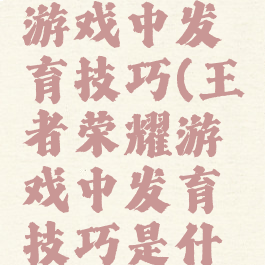 游戏中发
育技巧(王
者荣耀游
戏中发育
技巧是什